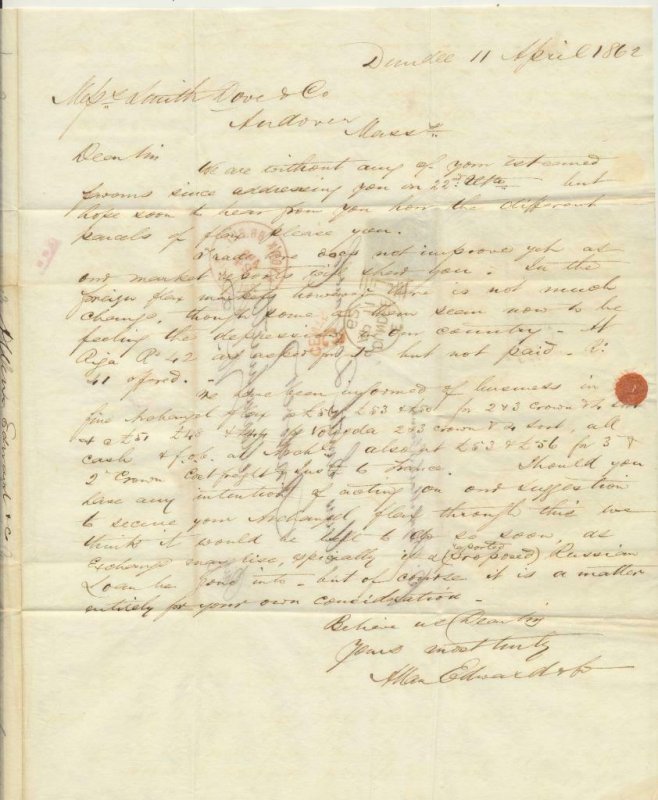 Dundee 11 April 1862
Messrs Smith Dove & Co
Andover
Masss
Dear Sir
We are without any of your esteemed
favors since addressing you on 22d Ulto but
hope soon to hear from you how the different
parcels of flax please you.
Trade here does not improve yet as
our market reports will shew you. In the
foreign flax markets however there is not much
change, though some of them seem now to be
feeling the depression in our country - At
Riga Ro 42 are asked for but not paid - Ro
41 offered. -
We have been informed of business in
fine Archangel flax @ £56, £53 & £50 for 2 & 3 crown & 4 sort
& @ £51 £48 & £44 for Vologda 2 & 3 crown & 4 sort, all
cash & f.o.b. at Archl also at £53 & £56 for 3 &
2d Crown Cost freight & to France. Should you
have any intention of acting on our suggestion
to secure your Archangel flax through this we
think it would be well to do so soon, as
Exchange may rise, especially if a (reported
proposed) Russian
Loan be gone into - but of course it is a matter
entirely for your own consideration -
Believe us Dear Sir
Yours most truly
Allan Edward & Co